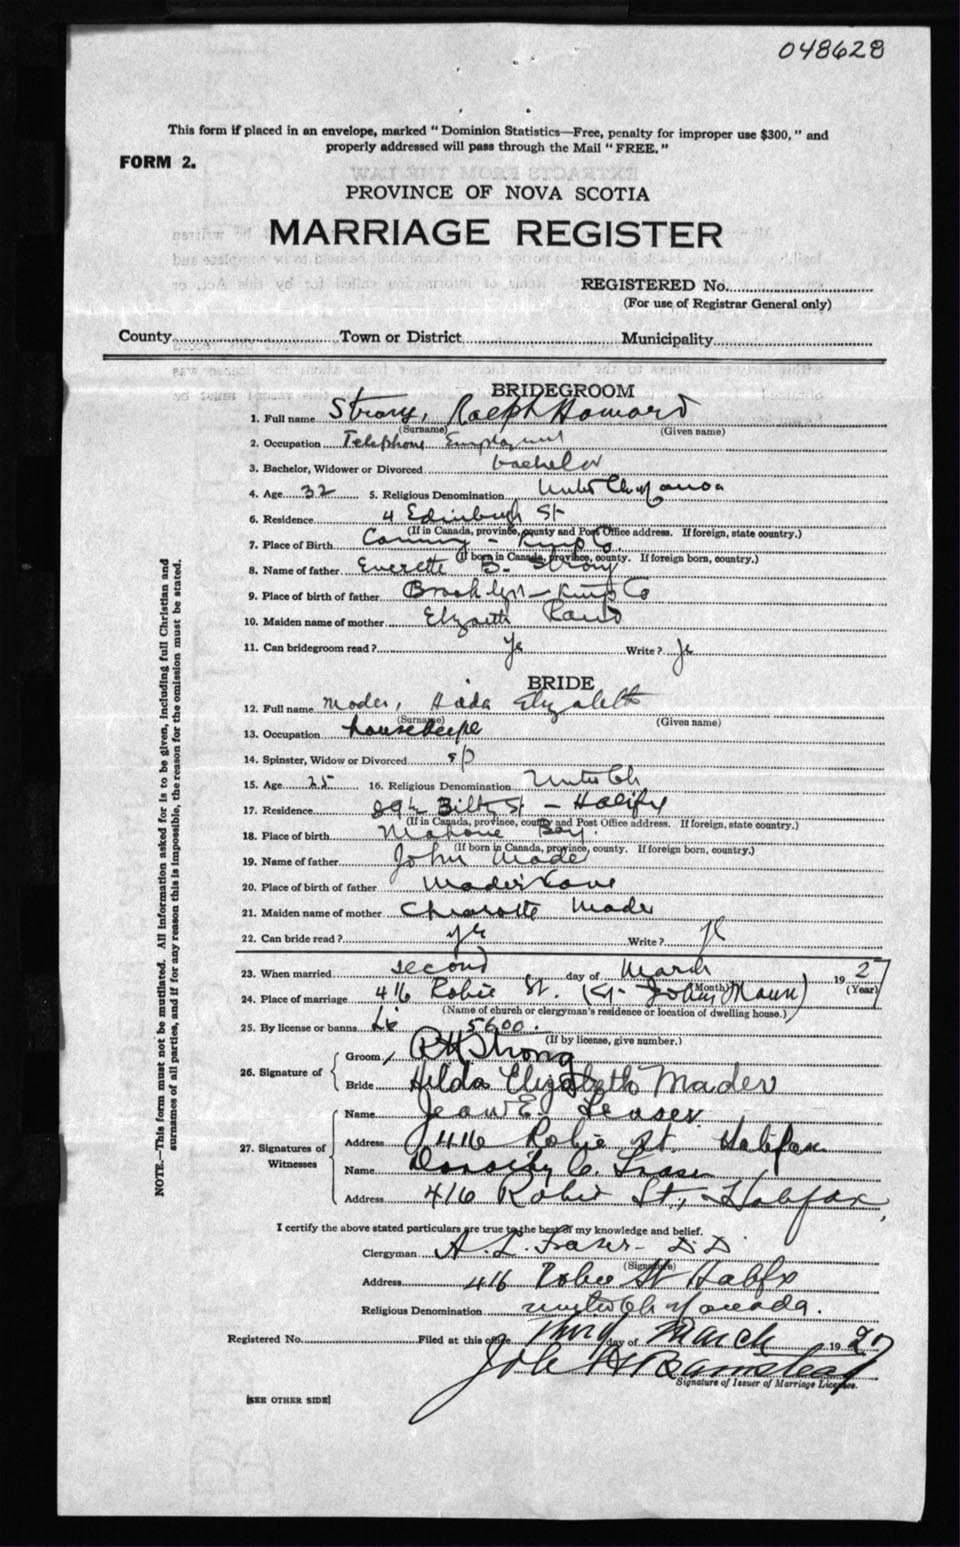 048628
This form if placed in an envelope, marked " Dominion Statistics—Free, penalty for improper use $300, " and
properly addressed will pass through the Mail " FREE. "
FORM 2.
PROVINCE OF NOVA SCOTIA
MARRIAGE REGISTER
REGISTERED No.
(For use of Registrar General only)
County Town or District Municipality
BRIDEGROOM
1. Full name Strong, Ralph Howard
(Surname) (Given name)
2. Occupation Telephone
3. Bachelor, Widower or Divorced bachelor
4. Age 32 5. Religious Denomination United Ch of Canada
6. Residence 4 Edinburgh St
(If in Canada, province, county and Post Office address. If foreign, state country.)
7. Place of Birth Canning - Kings Co.
(If born in Canada, province, county. If foreign born, country.)
8. Name of father Everette B. Strong
9. Place of birth of father Brooklyn - Kings Co
10. Maiden name of mother Elizabeth Rand
11. Can bridegroom read? Yes Write? Yes
BRIDE
12. Full name Mader, Hilda Elizabeth
(Surname) (Given name)
13. Occupation housekeeper
14. Spinster, Widow or Divorced sp
15. Age 25 16. Religious Denomination United Ch
17. Residence St - Halifax
(If in Canada, province, county and Post Office address. If foreign, state country.)
18. Place of birth Mahone Bay.
(If born in Canada, province, county. If foreign born, country.)
19. Name of father John Mader
20. Place of birth of father Mader's Cove
21. Maiden name of mother Charlotte Mader
22. Can bride read? Yes Write? Yes
23. When married second day of March 19 27
(Month) (Year)
24. Place of marriage 416 Robie St. (St. John's Manse)
(Name of church or clergyman's residence or location of dwelling house.)
25. By license or banns Lic 5600.
(If by license, give number.)
26. Signature of
Groom R H Strong
Bride Hilda Elizabeth Mader
27. Signatures of Witnesses
Name Jean E. Fraser
Address 416 Robie St. Halifax
Name Dorothy C. Fraser
Address 416 Robie St., Halifax,
I certify the above stated particulars are true to the best of my knowledge and belief.
Clergyman A. L. Fraser - D.D.
(Signature)
Address 416 Robie St Halifx
Religious Denomination United Ch of Canada.
Registered No. Filed at this office third day of March 19 27
Signature of Issuer of Marriage Licenses.
[SEE OTHER SIDE]
NOTE.—This form must not be mutilated. All information asked for is to be given, including full Christian and
surnames of all parties, and if for any reason this is impossible, the reason for the omission must be stated.